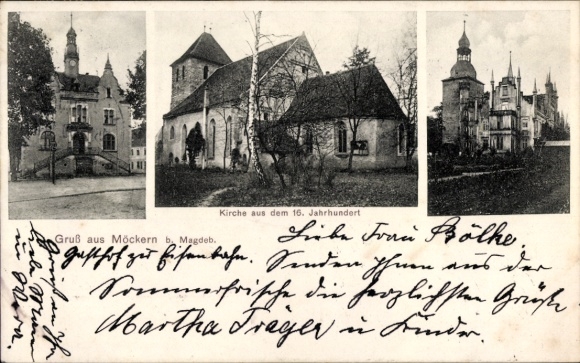 Kirche aus dem 16. Jahrhundert
Gruß aus Möckern b. Magdeb.
Gasthof zur Eisenbahn.
Liebe Frau Bölke.
Senden Ihnen aus der
Sommerfrische die herzlichsten Grüße
Martha Träger u Kinder.
Gruß an Ihr